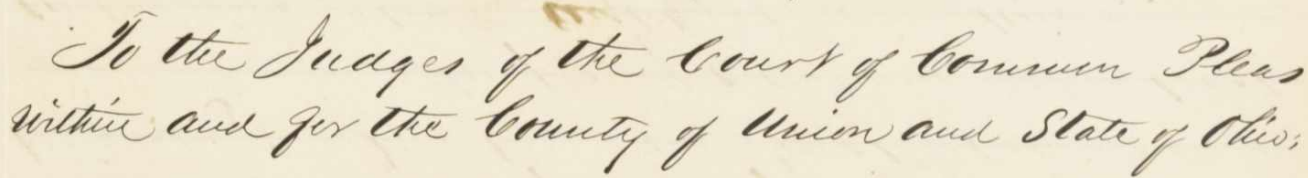 To the Judges of the Court of Common Pleas
within and for the County of Union and State of Ohio: